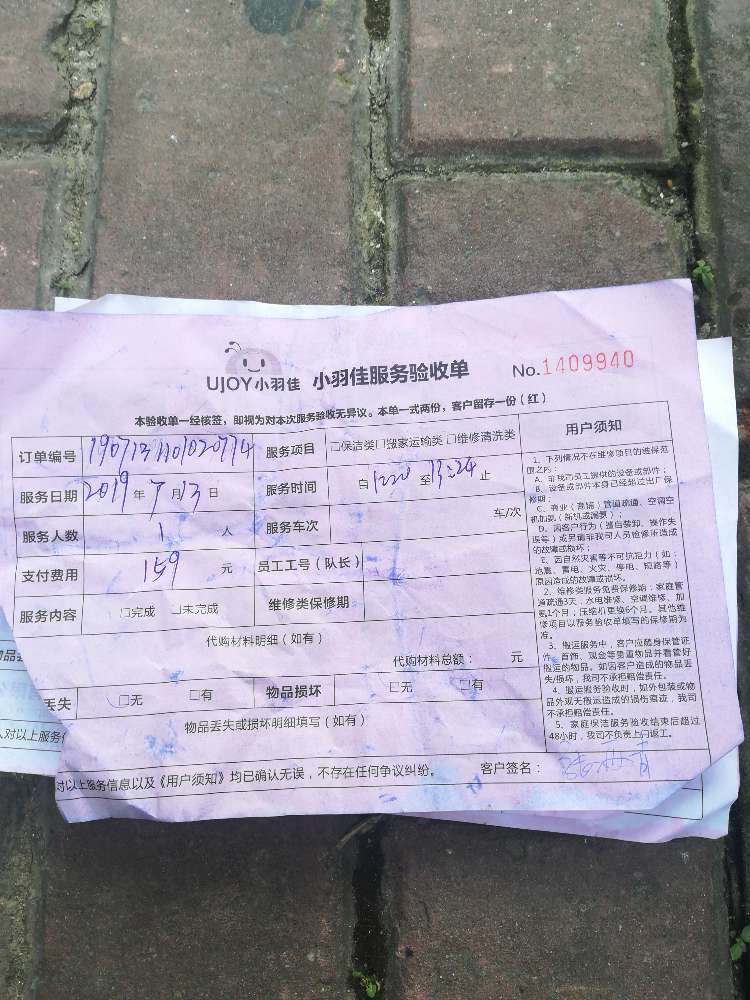 UJOY小羽佳 小羽佳服务验收单 No.1409940
本验收单一经核签，即视为对本次服务验收无异议。本单一式两份，客户留存一份（红）
订单编号 1907131101020774 服务项目 □保洁类□搬家运输类 □维修清洗类
服务日期 2019 年 7 月 13 日 服务时间 自 1220 至 13:24 止
服务人数 1 人 服务车次 车/次
支付费用 159 元 员工工号（队长）
服务内容 □完成 □未完成 维修类保修期
代购材料明细（如有）
代购材料总额： 元
丢失 □无 □有 物品损坏 □无 □有
物品丢失或损坏明细填写（如有）
对以上服务信息以及《用户须知》均已确认无误，不存在任何争议纠纷。 客户签名：
用户须知
1、下列情况不在维修项目的维保范
围之内：
A、非我司员工提供的设备或部件；
B、设备或部件本身已经超过出厂保
修期；
C、商业（商铺）管道疏通、空调空
机加氟（新机或漏氟）；
D、因客户行为（擅自装卸、操作失
误等）或另请非我司人员检修所造成
的故障或损坏；
E、因自然灾害等不可抗拒力（如：
地震、雷电、火灾、停电、短路等）
原因造成的故障或损坏。
2、维修类服务免费保修期：家庭管
道疏通3天，水电维修、空调维修、加
氟1个月；压缩机更换6个月。其他维
修项目以服务验收单填写的保修期为
准。
3、搬运服务中，客户应随身保管证
件、首饰、现金等贵重物品并看管好
搬运的物品。如因客户造成的物品丢
失/损坏，我司不承担赔偿责任。
4、搬运服务验收时，如外包装或物
品外观无搬运造成的损伤痕迹，我司
不承担赔偿责任。
5、家庭保洁服务验收结束后超过
48小时，我司不负责上门返工。
物品
对以上服务